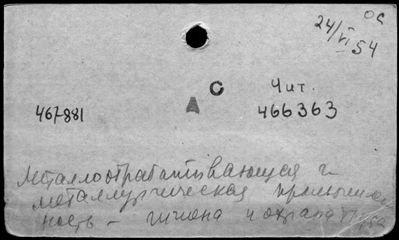 ос
24/VI 54
С
А
Чит.
467881
466363
Металлообрабатывающая и
металлургическая промышлен
ность – гигиена и охрана труда